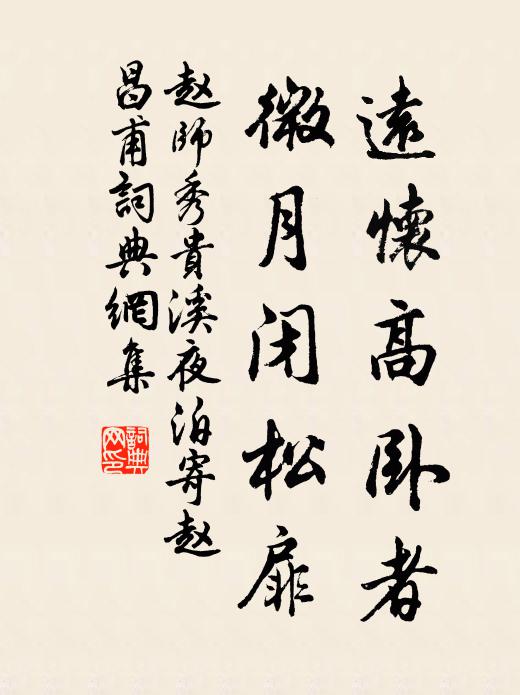 遠懷高卧者
微月闭松扉
赵師秀貴溪夜泊寄赵
昌甫詞典網集
詞典网印